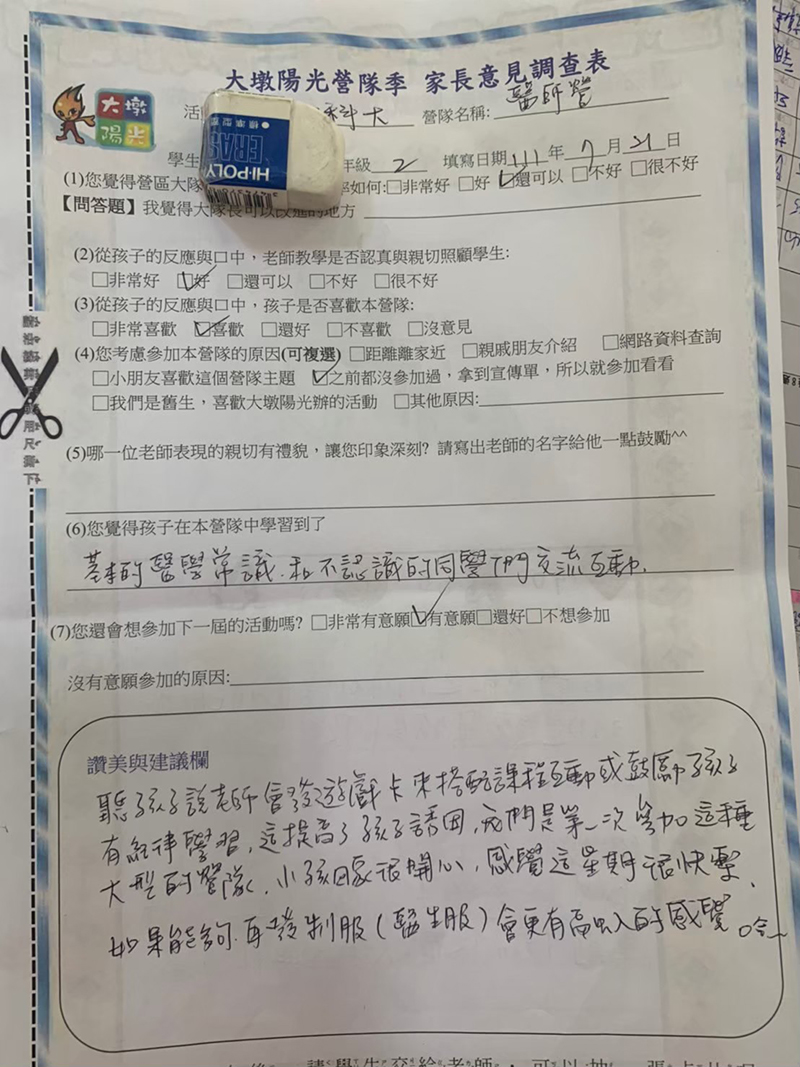 大墩陽光營隊季 家長意見調查表
大墩
陽光
活 科大 營隊名稱: 醫師營
學生 年級 2 填寫日期 111 年 7 月 21 日
(1)您覺得營區大隊 如何:□非常好 □好 ☑還可以 □不好 □很不好
【問答題】我覺得大隊長可以改進的地方
HI-POLY
ERAS
(2)從孩子的反應與口中，老師教學是否認真與親切照顧學生:
□非常好 ☑好 □還可以 □不好 □很不好
(3)從孩子的反應與口中，孩子是否喜歡本營隊:
□非常喜歡 ☑喜歡 □還好 □不喜歡 □沒意見
(4)您考慮參加本營隊的原因(可複選) □距離離家近 □親戚朋友介紹 □網路資料查詢
□小朋友喜歡這個營隊主題 ☑之前都沒參加過，拿到宣傳單，所以就參加看看
□我們是舊生，喜歡大墩陽光辦的活動 □其他原因:
(5)哪一位老師表現的親切有禮貌，讓您印象深刻? 請寫出老師的名字給他一點鼓勵^^
(6)您覺得孩子在本營隊中學習到了
基本的醫學常識.和不認識的同學們交流互動.
(7)您還會想參加下一屆的活動嗎? □非常有意願☑有意願□還好□不想參加
沒有意願參加的原因:
讚美與建議欄
聽孩子說老師會發遊戲卡來搭配課程互動或鼓勵孩子
有紀律學習，這提高了孩子誘因，我們是第一次參加這種
大型的營隊，小孩回家很開心，感覺這星期很快樂、
如果能夠.再發制服(醫生服)會更有融入的感覺。哈~
請學生交給老師，可以抽 張卡片